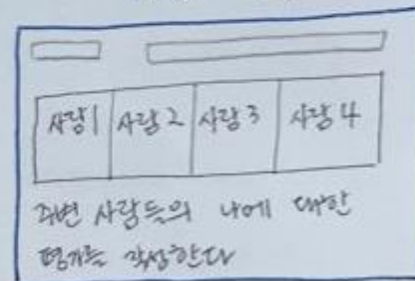 사람1 사람2 사람3 사람4
주변 사람들의 나에 대한
평가를 작성한다